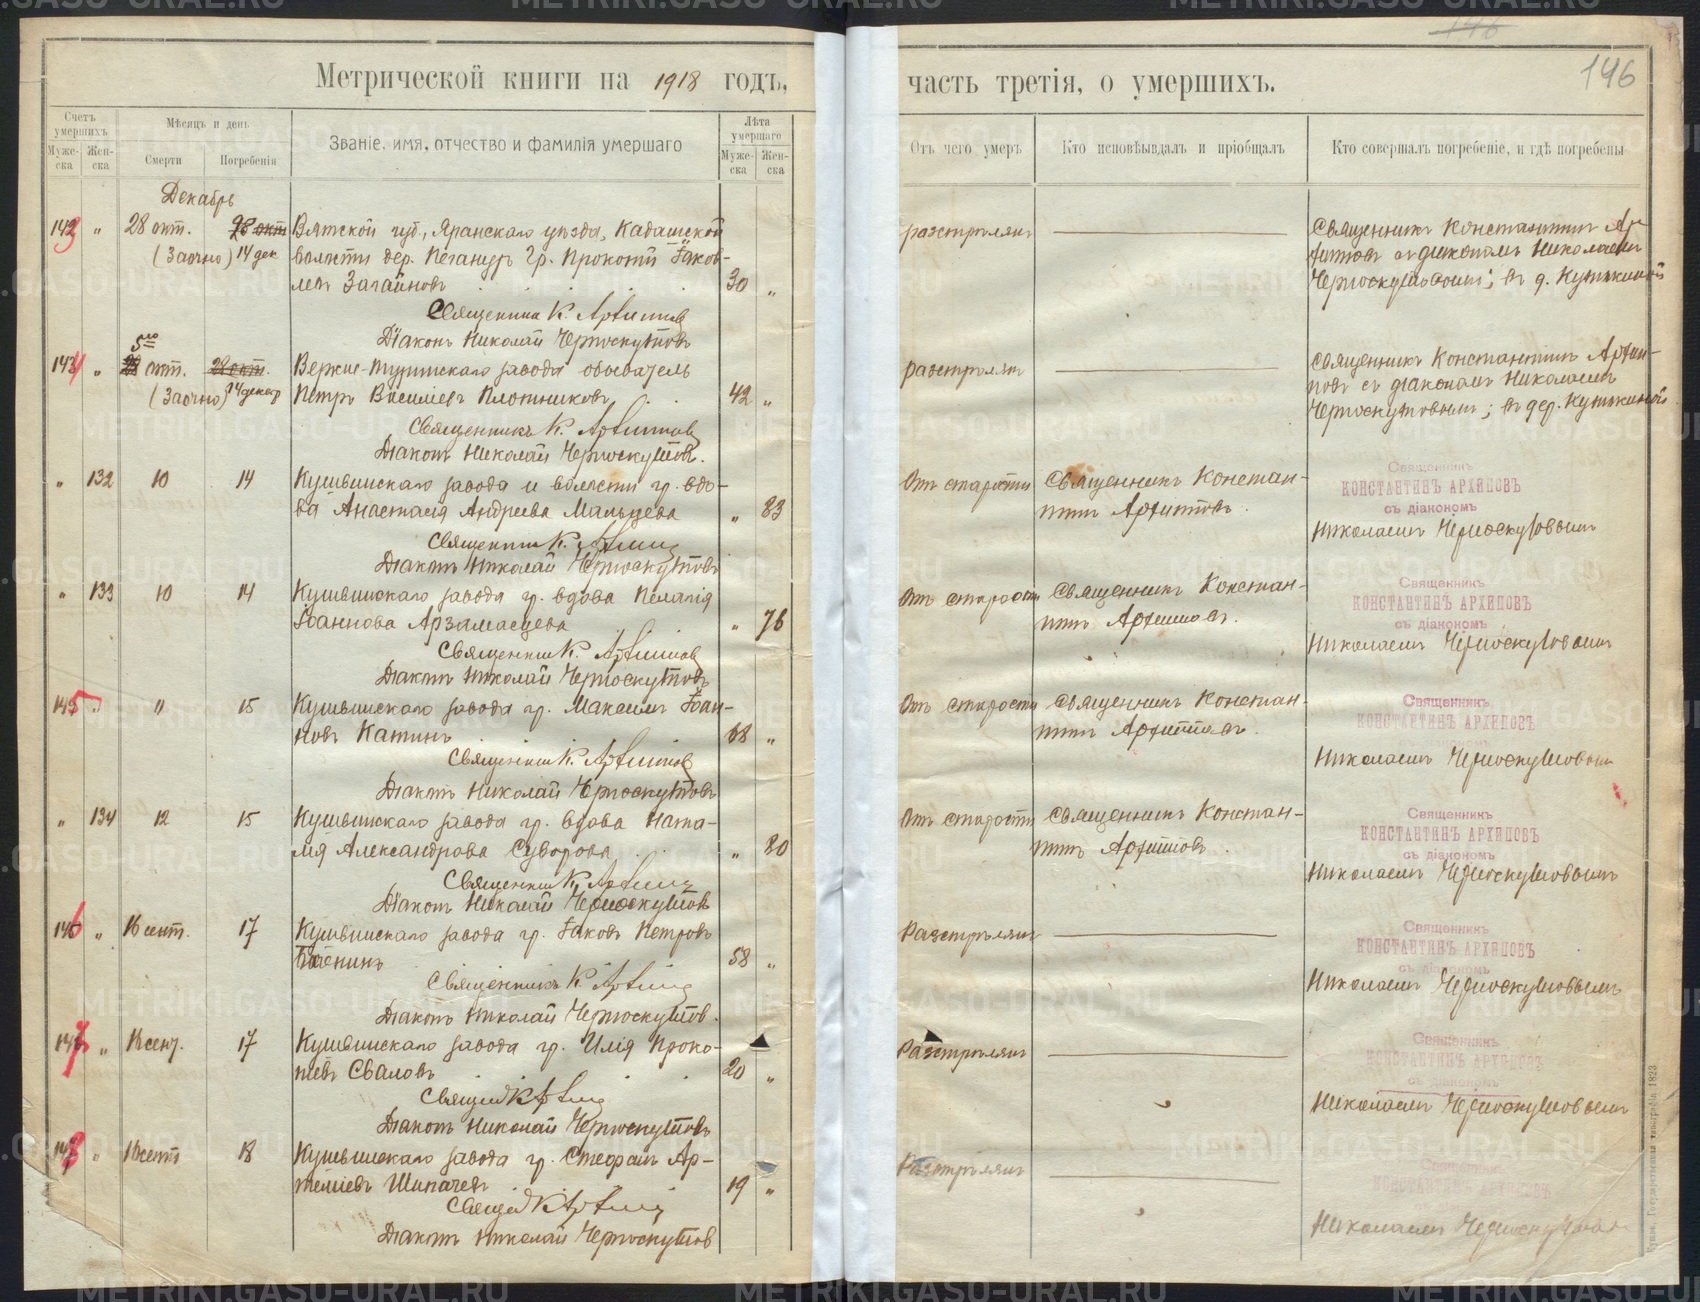 Метрической книги на 1918 годъ, часть третія, о умершихъ.
146
Счетъ умершихъ
Мѣсяцъ и день
Званіе, имя, отчество и фамилія умершаго
Лѣта умершаго
Отъ чего умеръ
Кто исповѣывдалъ и пріобщалъ
Кто совершалъ погребеніе, и гдѣ погребены
Муже-ска
Жен-ска
Смерти
Погребенія
Муже-ска
Жен-ска
Декабрь
143 " 28 окт. 28 окт Вятской губ., Яранскаго уѣзда, Кадашской
(Заочно) 14 дек волости дер. Пегануръ гр. Прокопій Іаков-
левъ Загайновъ 30 "
разстрѣлянъ
Священникъ Константинъ Ар
хиповъ съ діакономъ Николаемъ
Черноскутовымъ; въ д. Кутякиной
Священникъ К. Архиповъ
Діаконъ Николай Черноскутовъ
5го
144 " окт. 28 окт. Верхне-Туринскаго завода обыватель
(Заочно) 14 декабр Петръ Василіевъ Плотниковъ 42 "
разстрѣлянъ
Священникъ Константинъ Архи-
повъ съ діакономъ Николаемъ
Черноскутовымъ; въ дер. Кутякиной
Священникъ К. Архиповъ
Діаконъ Николай Черноскутовъ.
" 132 10 14 Кушвинскаго завода и волости гр. вдо-
ва Анастасія Андреева Мальцева " 83
Отъ старости Священникъ Констан-
тинъ Архиповъ.
Священникъ
КОНСТАНТИНЪ АРХИПОВЪ
съ діакономъ
Николаемъ Черноскутовымъ
Священникъ К. Архипов
Діаконъ Николай Черноскутовъ
" 133 10 14 Кушвинскаго завода гр. вдова Пелагія
Іоаннова Арзамасцева " 76
Отъ старости Священникъ Констан-
тинъ Архиповъ.
Священникъ
КОНСТАНТИНЪ АРХИПОВЪ
съ діакономъ
Николаемъ Черноскутовымъ
Священникъ К. Архиповъ
Діаконъ Николай Черноскутовъ
145 " " 15 Кушвинскаго завода гр. Максимъ Іоан-
новъ Катинъ 68 "
Отъ старости Священникъ Констан-
тинъ Архиповъ.
Священникъ
КОНСТАНТИНЪ АРХИПОВЪ
Николаемъ Черноскутовым
Священникъ К. Архиповъ
Діаконъ Николай Черноскутовъ
" 134 12 15 Кушвинскаго завода гр. вдова Ната-
лія Александрова Суворова " 80
Отъ старости Священникъ Констан-
тинъ Архиповъ.
Священникъ
КОНСТАНТИНЪ АРХИПОВЪ
съ діакономъ
Николаемъ Черноскутовымъ
Священник К. Архипов
Діаконъ Николай Черноскутовъ
146 " 16 сент. 17 Кушвинскаго завода гр. Іаковъ Петровъ
58 "
Разстрѣлянъ
Священникъ
КОНСТАНТИНЪ АРХИПОВЪ
съ діакономъ
Николаемъ Черноскутовымъ
Священникъ К. Архипов
Діаконъ Николай Черноскутов.
147 " 16 сент. 17 Кушвинскаго завода гр. Илія Проко-
піевъ Сваловъ 20 "
Разстрѣлянъ
Священникъ
КОНСТАНТИНЪ АРХИПОВЪ
съ діакономъ
Николаемъ Черноскутовымъ
Діаконъ Николай Черноскутовъ
148 " 16 сент 18 Кушвинскаго завода гр. Стефанъ Ар-
теміевъ Шипачевъ 19 "
Разстрѣлянъ
Священникъ
КОНСТАНТИНЪ АРХИПОВЪ
Николаемъ Черноскутовым
Діаконъ Николай Черноскутов
Кушв. Государственная типографія. 1823
METRIKI.GASO-URAL.RU